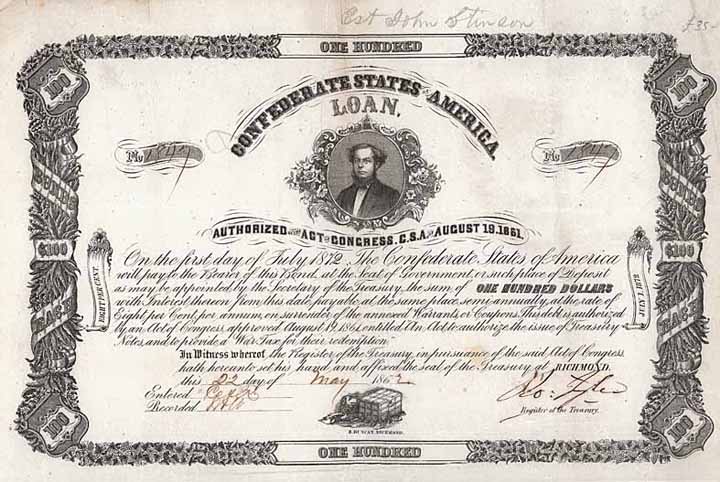 Est John Stinson
£35-
ONE HUNDRED
100
100
CONFEDERATE STATES OF AMERICA.
LOAN,
No 1847
No 1847
AUTHORIZED BY THE ACT OF CONGRESS, C.S.A. OF AUGUST 19.1861.
$100
$100
EIGHT PER CENT.
1ST JULY 1872
On the first day of July 1872, The Confederate States of America
will pay to the Bearer of this Bond, at the Seat of Government, or such place of Deposit
as may be appointed by the Secretary of the Treasury, the sum of ONE HUNDRED DOLLARS
with Interest thereon from this date, payable at the same place, semi-annually, at the rate of
Eight per Cent, per annum, on surrender of the annexed Warrants or Coupons. This debt is authorized
by an Act of Congress, approved August 19. 1861, entitled An Act to authorize the issue of Treasury
Notes, and to provide a War Tax for their redemption.
In Witness whereof, the Register of the Treasury, in pursuance of the said Act of Congress,
hath hereunto set his hand and affixed the seal of the Treasury at RICHMOND,
this 22 day of May 1862
Entered
Recorded
Ro: Tyler
Register of the Treasury.
B. DUNCAN, RICHMOND.
100
100
ONE HUNDRED